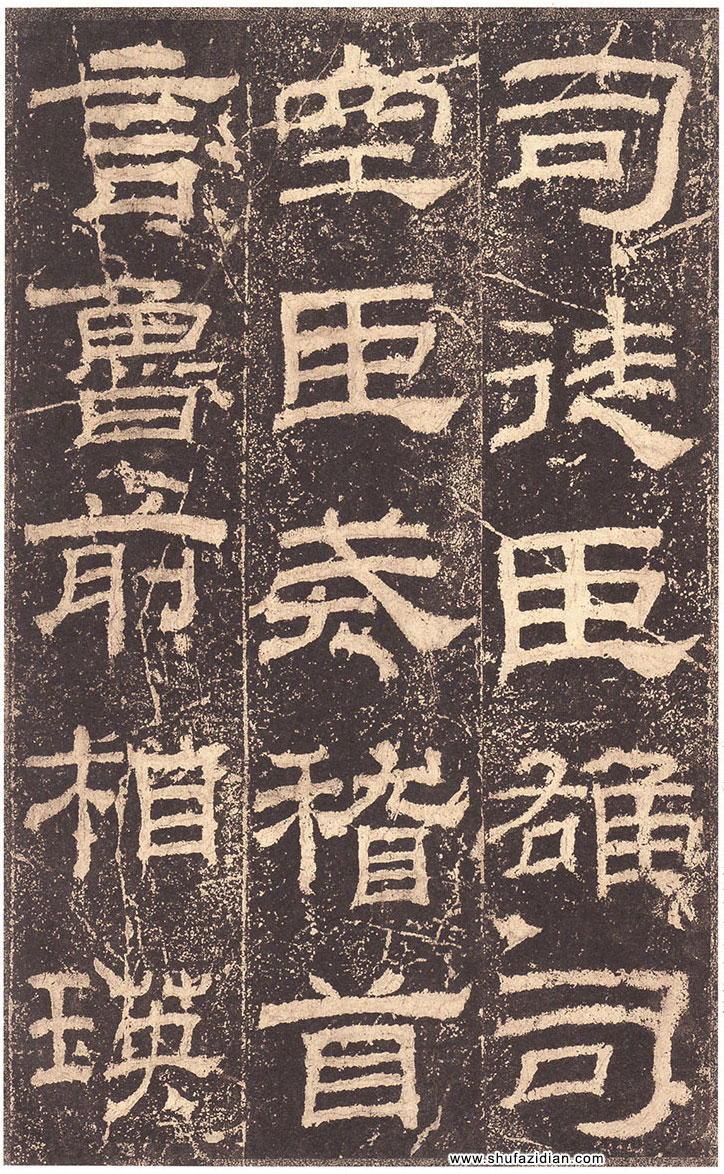 司徒臣雄司
空臣戒稽首
言魯前相瑛
www.shufazidian.com